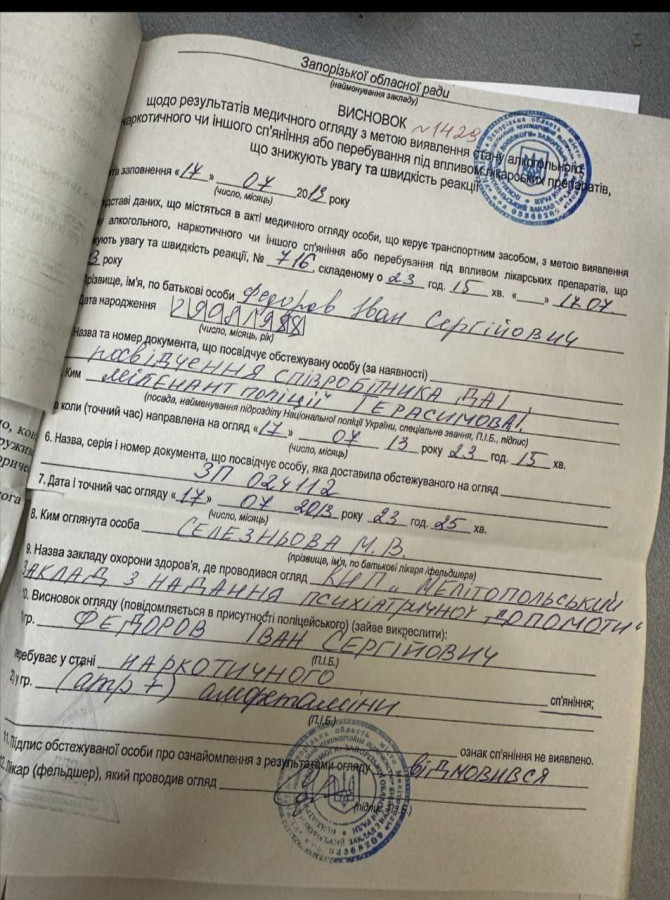 Запорізької обласної ради
(найменування закладу)
ВИСНОВОК №1429
щодо результатів медичного огляду з метою виявлення стану алкогольного,
наркотичного чи іншого сп'яніння або перебування під впливом лікарських препаратів,
що знижують увагу та швидкість реакції
та заповнення «17» 07 2013 року
(число, місяць)
підставі даних, що містяться в акті медичного огляду особи, що керує транспортним засобом, з метою виявлення
ну алкогольного, наркотичного чи іншого сп'яніння або перебування під впливом лікарських препаратів, що
жують увагу та швидкість реакції, № 716 складеному о 23 год. 15 хв. «___» 17.07.
3 року
Прізвище, ім'я, по батькові особи Федоров Іван Сергійович
Дата народження 29081988
(число, місяць, рік)
Назва та номер документа, що посвідчує обстежувану особу (за наявності)
посвідчення співробітника ДАІ
Ким лейтенант поліції Герасимова І.
(посада, найменування підрозділу Національної поліції України, спеціальне звання, П.І.Б., підпис)
коли (точний час) направлена на огляд «17» 07 13 року 23 год. 15 хв.
(число, місяць)
6. Назва, серія і номер документа, що посвідчує особу, яка доставила обстежуваного на огляд
ЗП 024112
7. Дата і точний час огляду «17» 07 2013 року 23 год. 25 хв.
(число, місяць)
8. Ким оглянута особа СЕЛЕЗНЬОВА М.В.
(прізвище, ім'я, по батькові лікаря /фельдшера)
9. Назва закладу охорони здоров'я, де проводився огляд КНП „МЕЛІТОПОЛЬСЬКИЙ
ЗАКЛАД З НАДАННЯ ПСИХІАТРИЧНОЇ ДОПОМОГИ"
0. Висновок огляду (повідомляється в присутності поліцейського) (зайве викреслити):
1) гр. ФЕДОРОВ ІВАН СЕРГІЙОВИЧ
(П.І.Б.)
перебуває у стані НАРКОТИЧНОГО сп'яніння;
2) у гр. (атр +) амфетаміни
(П.І.Б.)
ознак сп'яніння не виявлено.
11. Підпис обстежуваної особи про ознайомлення з результатами огляду відмовився
12. Лікар (фельдшер), який проводив огляд
(підпис, П.І.Б.)